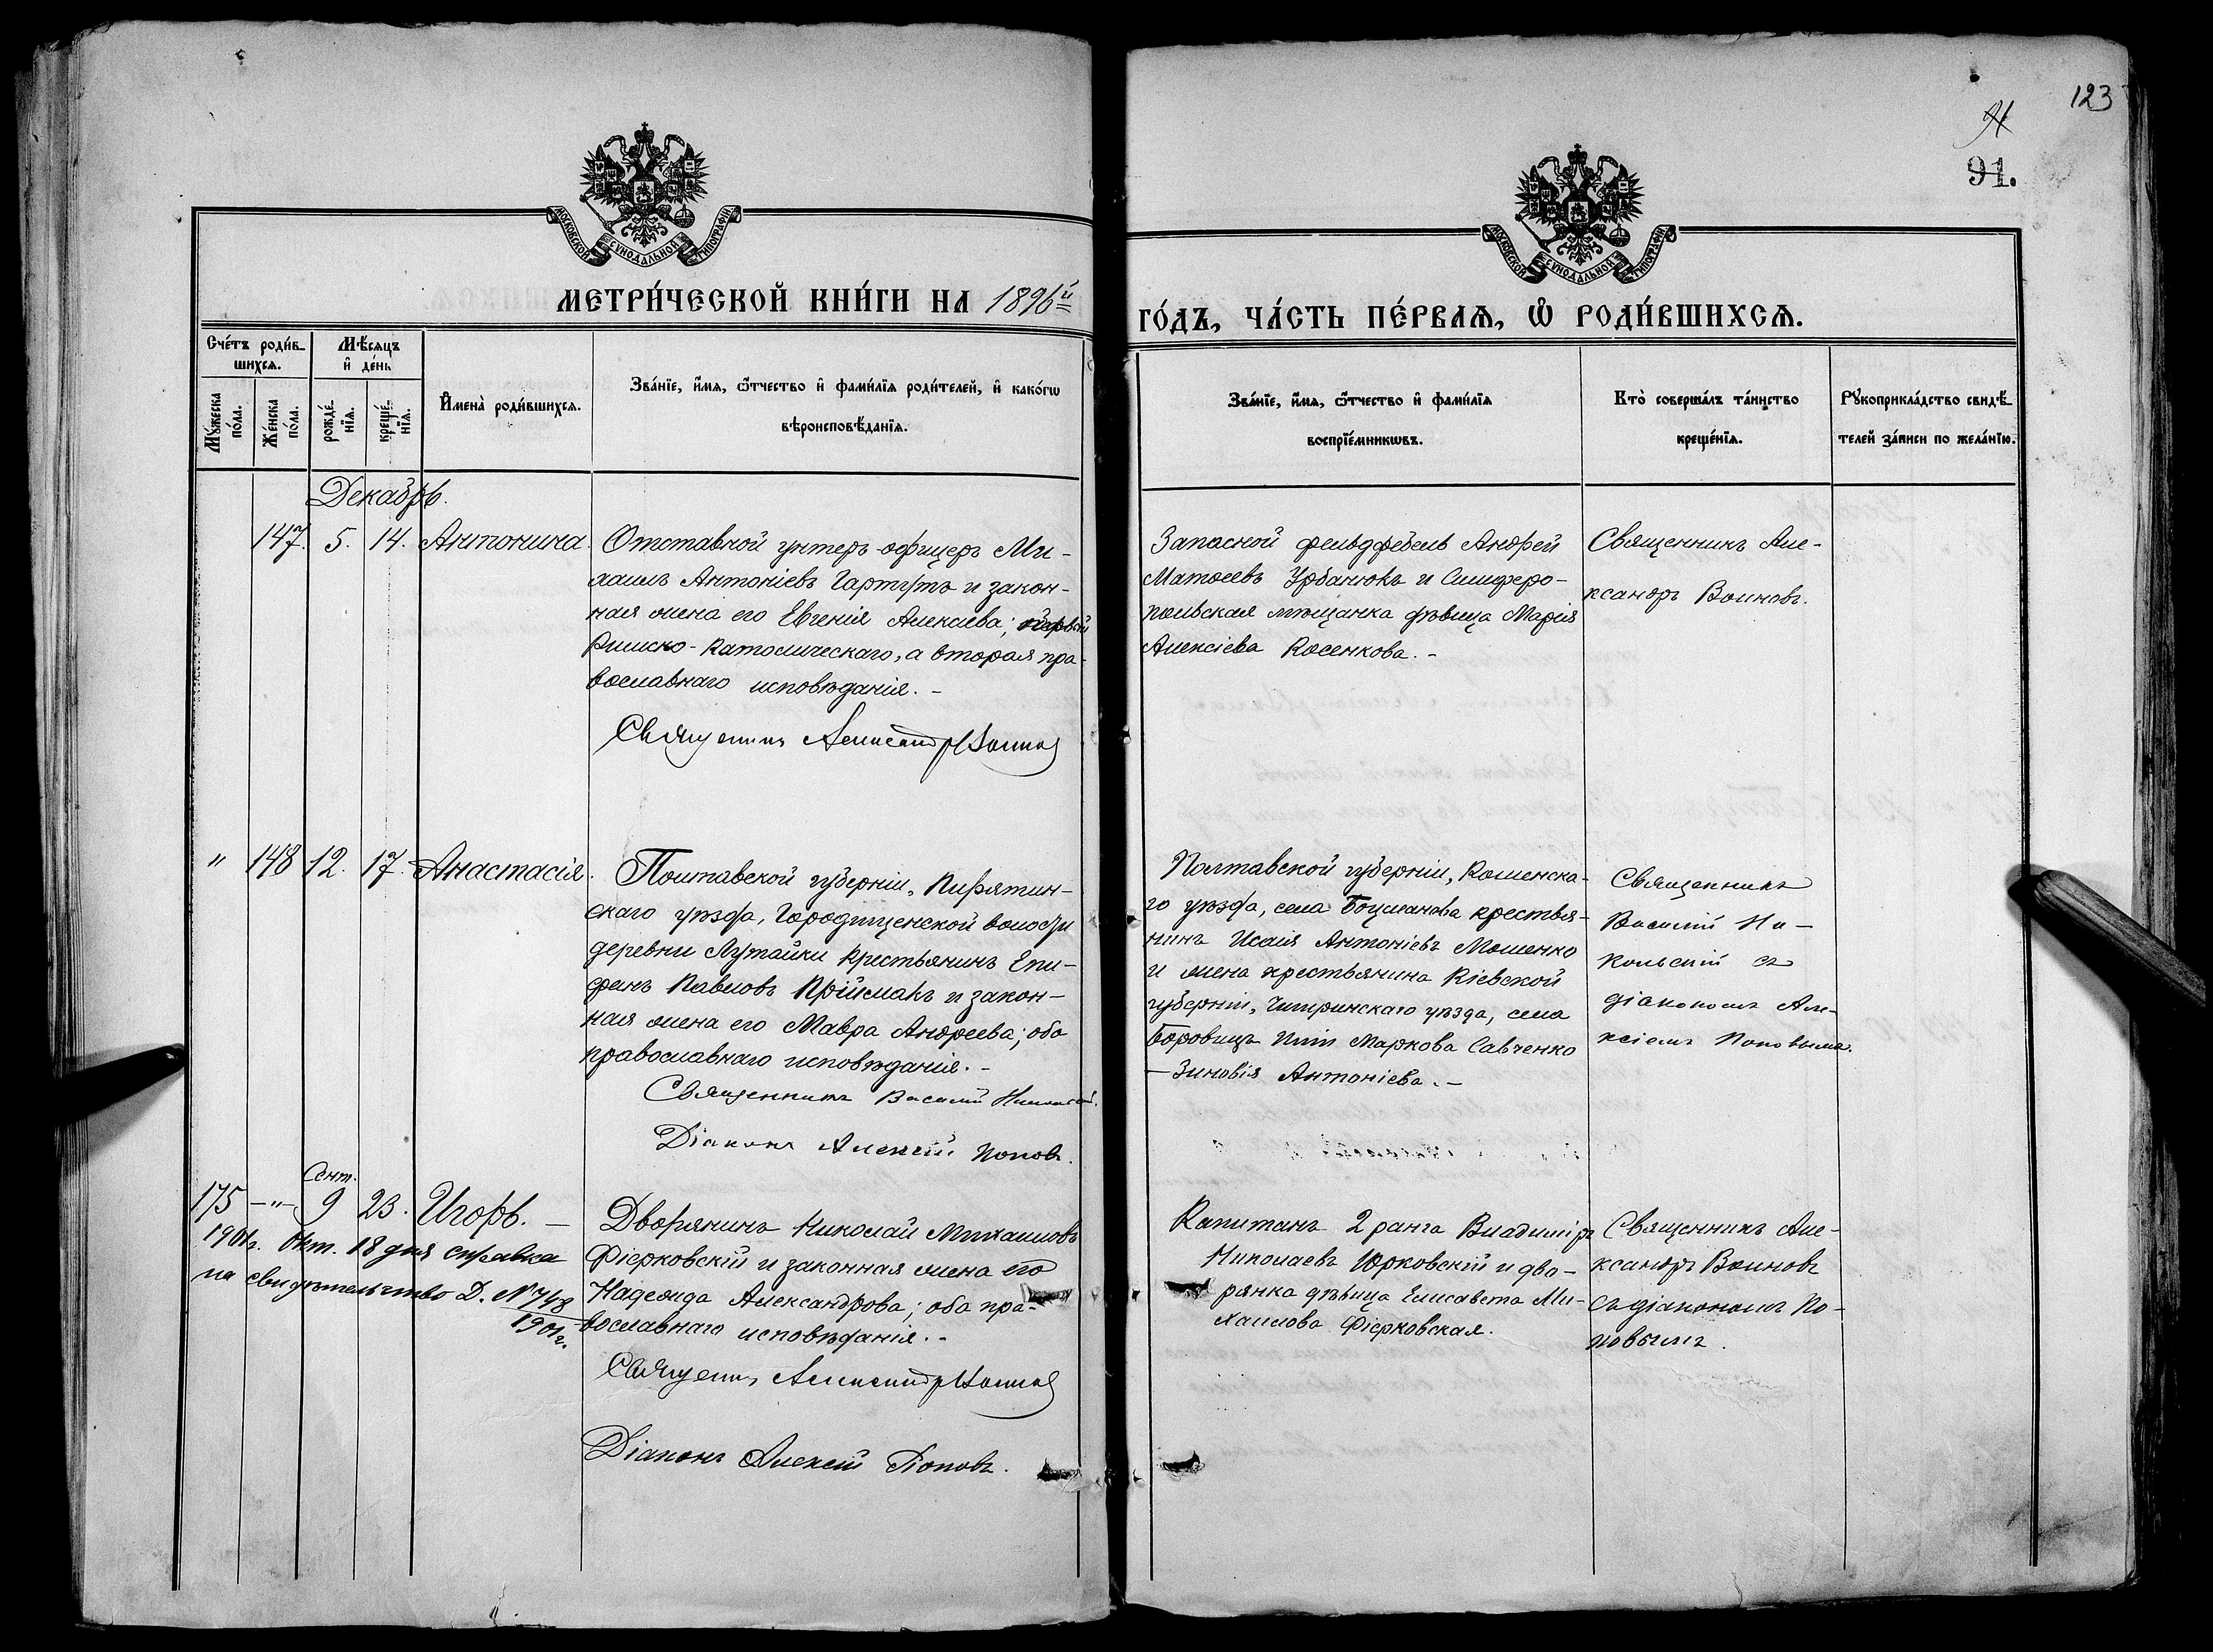 123
91
91.
МОСКОВСКОЙ СУНОДАЛЬНОЙ ТИПОГРАФІИ
МОСКОВСКОЙ СУНОДАЛЬНОЙ ТИПОГРАФІИ
МЕТРИ́ЧЕСКОЙ КНИ́ГИ НА 1896й
ГО́ДЪ, ЧА́СТЬ ПЕ́РВАѦ, Ѡ҆ РОДИ́ВШИХСѦ.
Сче́тъ роди́в-
шихсѧ.
Мѣ́сѧцъ
и҆ де́нь
Мꙋ́жеска
по́ла.
Же́нска
по́ла.
рожде́-
нїѧ.
креще́-
нїѧ.
И҆мена̀ роди́вшихсѧ.
Зва́нїе, и҆́мѧ, ѻ҆́тчество и҆ фами́лїѧ роди́телей, и҆ како́гѡ
вѣроисповѣ́данїѧ.
Зва́нїе, и҆́мѧ, ѻ҆́тчество и҆ фами́лїѧ
воспрїе́мникѡвъ.
Кто̀ соверша́лъ та́инство
креще́нїѧ.
Рꙋкоприкла́дство свидѣ́-
телей за́писи по жела́нїю.
Декабрь.
147. 5. 14. Антонина.
Отставной унтеръ-офицеръ Ми-
хаилъ Антоніевъ Гартутъ и закон-
ная жена его Евгенія Алексіева; первый
Римско-Католическаго, а вторая пра-
вославнаго исповѣданія. -
Священникъ Александръ Воиновъ
Запасной фельдфебель Андрей
Матѳеевъ Урбанюкъ и Симферо-
польская мѣщанка дѣвица Марія
Алексіева Косенкова. -
Священникъ Але-
ксандръ Воиновъ.
" 148 12. 17. Анастасія.
Полтавской губерніи, Пирятин-
скаго уѣзда, Городищенской волости
деревни Лутайки крестьянинъ Епи-
фанъ Павловъ Пріймакъ и закон-
ная жена его Мавра Андреева; оба
православнаго исповѣданія. -
Священникъ Василій Никольскій.
Діаконъ Алексій Поповъ.
Полтавской губерніи, Роменска-
го уѣзда, села Боцманова крестья-
нинъ Исаія Антоніевъ Мошенко
и жена крестьянина Кіевской
губерніи, Чигринскаго уѣзда, села
Боровицъ Маркова Савченко
- Зиновія Антоніева. -
Священникъ
Василій Ни-
кольскій съ
діакономъ Але-
ксіемъ Поповымъ.
Сент.
175 -"- 9 23. Игорь. -
1901г. Окт. 18 дня справка
на свидѣтельство Д. № 748
1901г.
Дворянинъ Николай Михаиловъ
Фіерковскій и законная жена его
Надежда Александрова; оба пра-
вославнаго исповѣданія. -
Священникъ Александръ Воиновъ
Діаконъ Алексій Поповъ.
Капитанъ 2 ранга Владиміръ
Николаевъ Юрковскій и дво-
рянка дѣвица Елисавета Ми-
хаилова Фіерковская.
Священникъ Але-
ксандръ Воиновъ
съ діакономъ По-
повымъ.